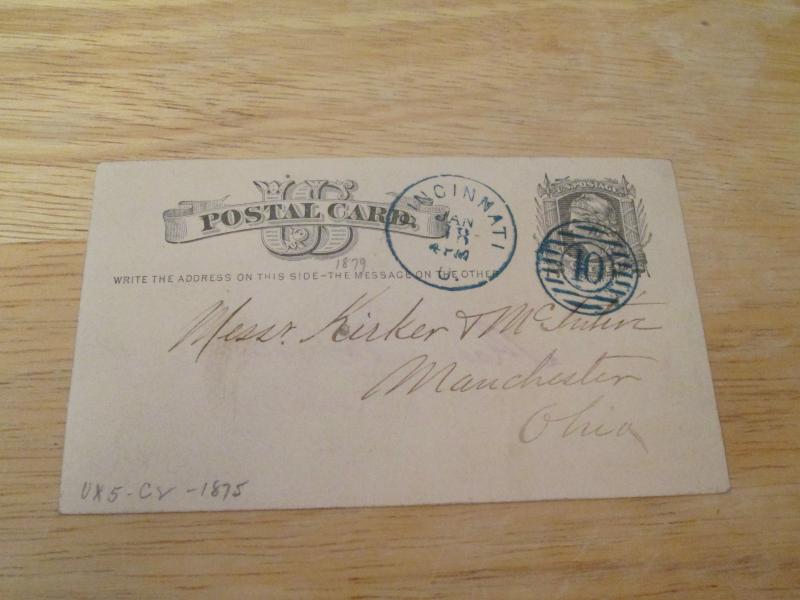 US
POSTAL CARD.
U.S. POSTAGE
CINCINNATI
JAN
18
4 PM
O.
10
1879
WRITE THE ADDRESS ON THIS SIDE–THE MESSAGE ON THE OTHER
Messr. Kirker & McIntire
Manchester
Ohio
UX5 - Cv - 1875